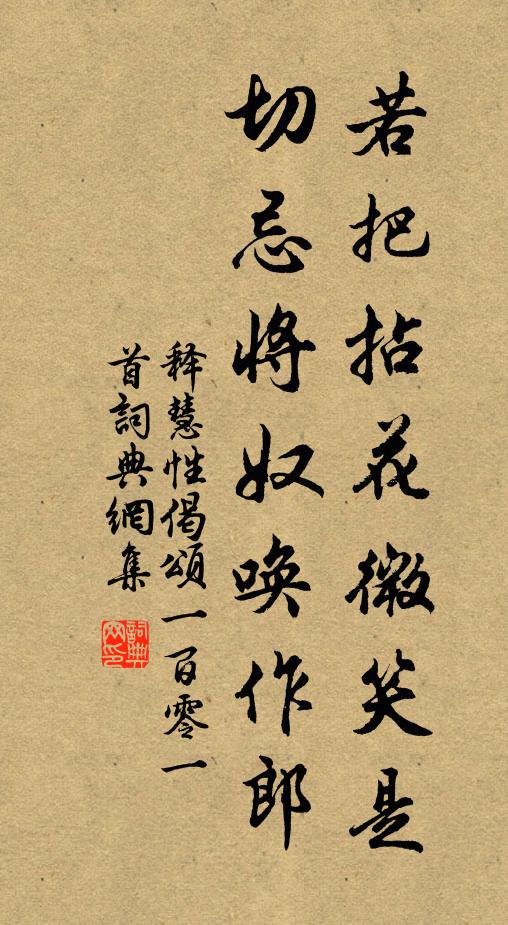 若把拈花微笑是
切忌將奴喚作郎
释慧性偈頌一百零一
首詞典網集
詞典
网印